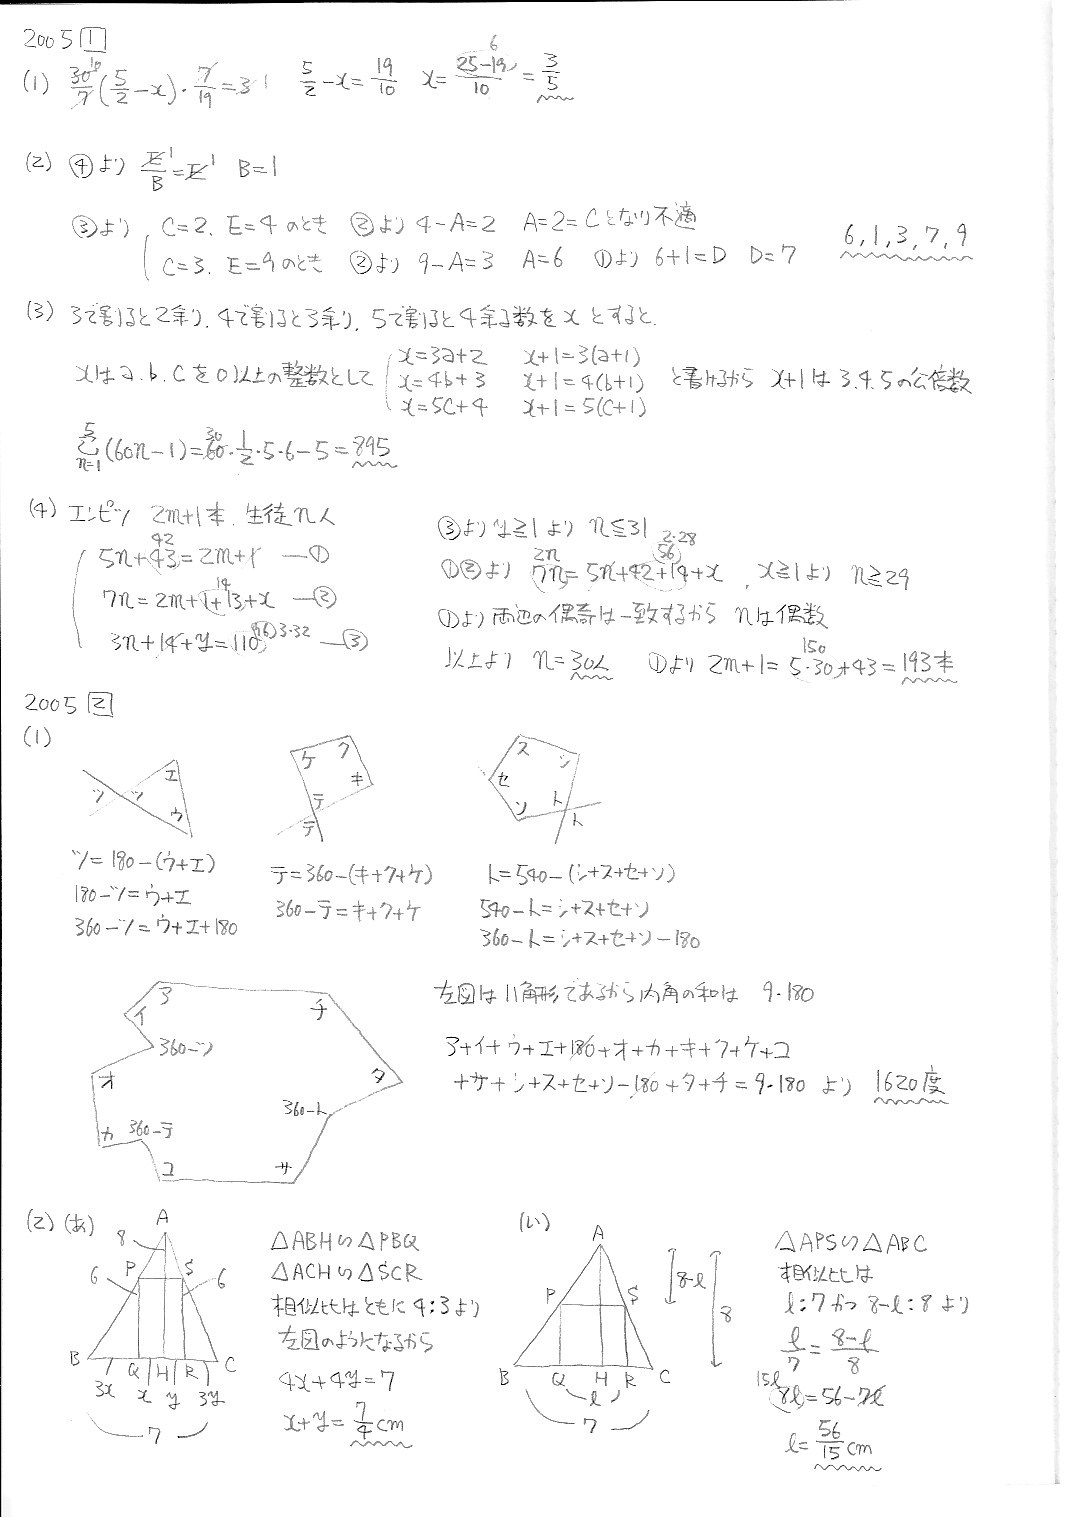 2005 1
(1) 30/7(5/2-x)・7/19=3 1 5/2-x=19/10 x=(25-19)/10=3/5
(2) ④より E/B=E B=1
③より C=2. E=4のとき ②より 4-A=2 A=2=Cとなり不適
C=3. E=9のとき ②より 9-A=3 A=6 ①より 6+1=D D=7 6,1,3,7,9
(3) 3で割ると2余り. 4で割ると3余り. 5で割ると4余る数をxとすると.
x=3a+2 x+1=3(a+1)
xはa.b.cを0以上の整数として x=4b+3 x+1=4(b+1) と書けるから x+1は3.4.5の公倍数
x=5c+4 x+1=5(c+1)
5Σn=1(60n-1)=60・1/2・5・6-5=895
(4) エンピツ 2m+1本. 生徒n人
5n+43=2m+1 ―①
7n=2m+1+13+x ―②
3n+14+y=110 ―③
③より y≧1より n≦31
①②より 7n=5n+42+14+x , x≧1より n≧29
①より両辺の偶奇は一致するから nは偶数
以上より n=30人 ①より 2m+1=5・30+43=193本
2005 2
(1)
エ ツ ツ ウ
ケ ク キ テ テ
ス シ セ ソ ト ト
ツ=180-(ウ+エ)
180-ツ=ウ+エ
360-ツ=ウ+エ+180
テ=360-(キ+ク+ケ)
360-テ=キ+ク+ケ
ト=540-(シ+ス+セ+ソ)
540-ト=シ+ス+セ+ソ
360-ト=シ+ス+セ+ソ-180
ア
イ チ
360-ツ
オ タ
360-ト
カ 360-テ
コ サ
左図は11角形であるから内角の和は 9・180
ア+イ+ウ+エ+180+オ+カ+キ+ク+ケ+コ
+サ+シ+ス+セ+ソ-180+タ+チ=9・180 より 1620度
(2)(あ)
A
8
6 P S 6
B Q H R C
3x x y 3y
7
△ABH∽△PBQ
△ACH∽△SCR
相似比はともに4:3より
左図のようになるから
4x+4y=7
x+y=7/4cm
(い)
A
8-l
P S 8
B Q H R C
l
7
△APS∽△ABC
相似比は
l:7かつ8-l:8より
l/7=(8-l)/8
15l
8l=56-7l
l=56/15cm